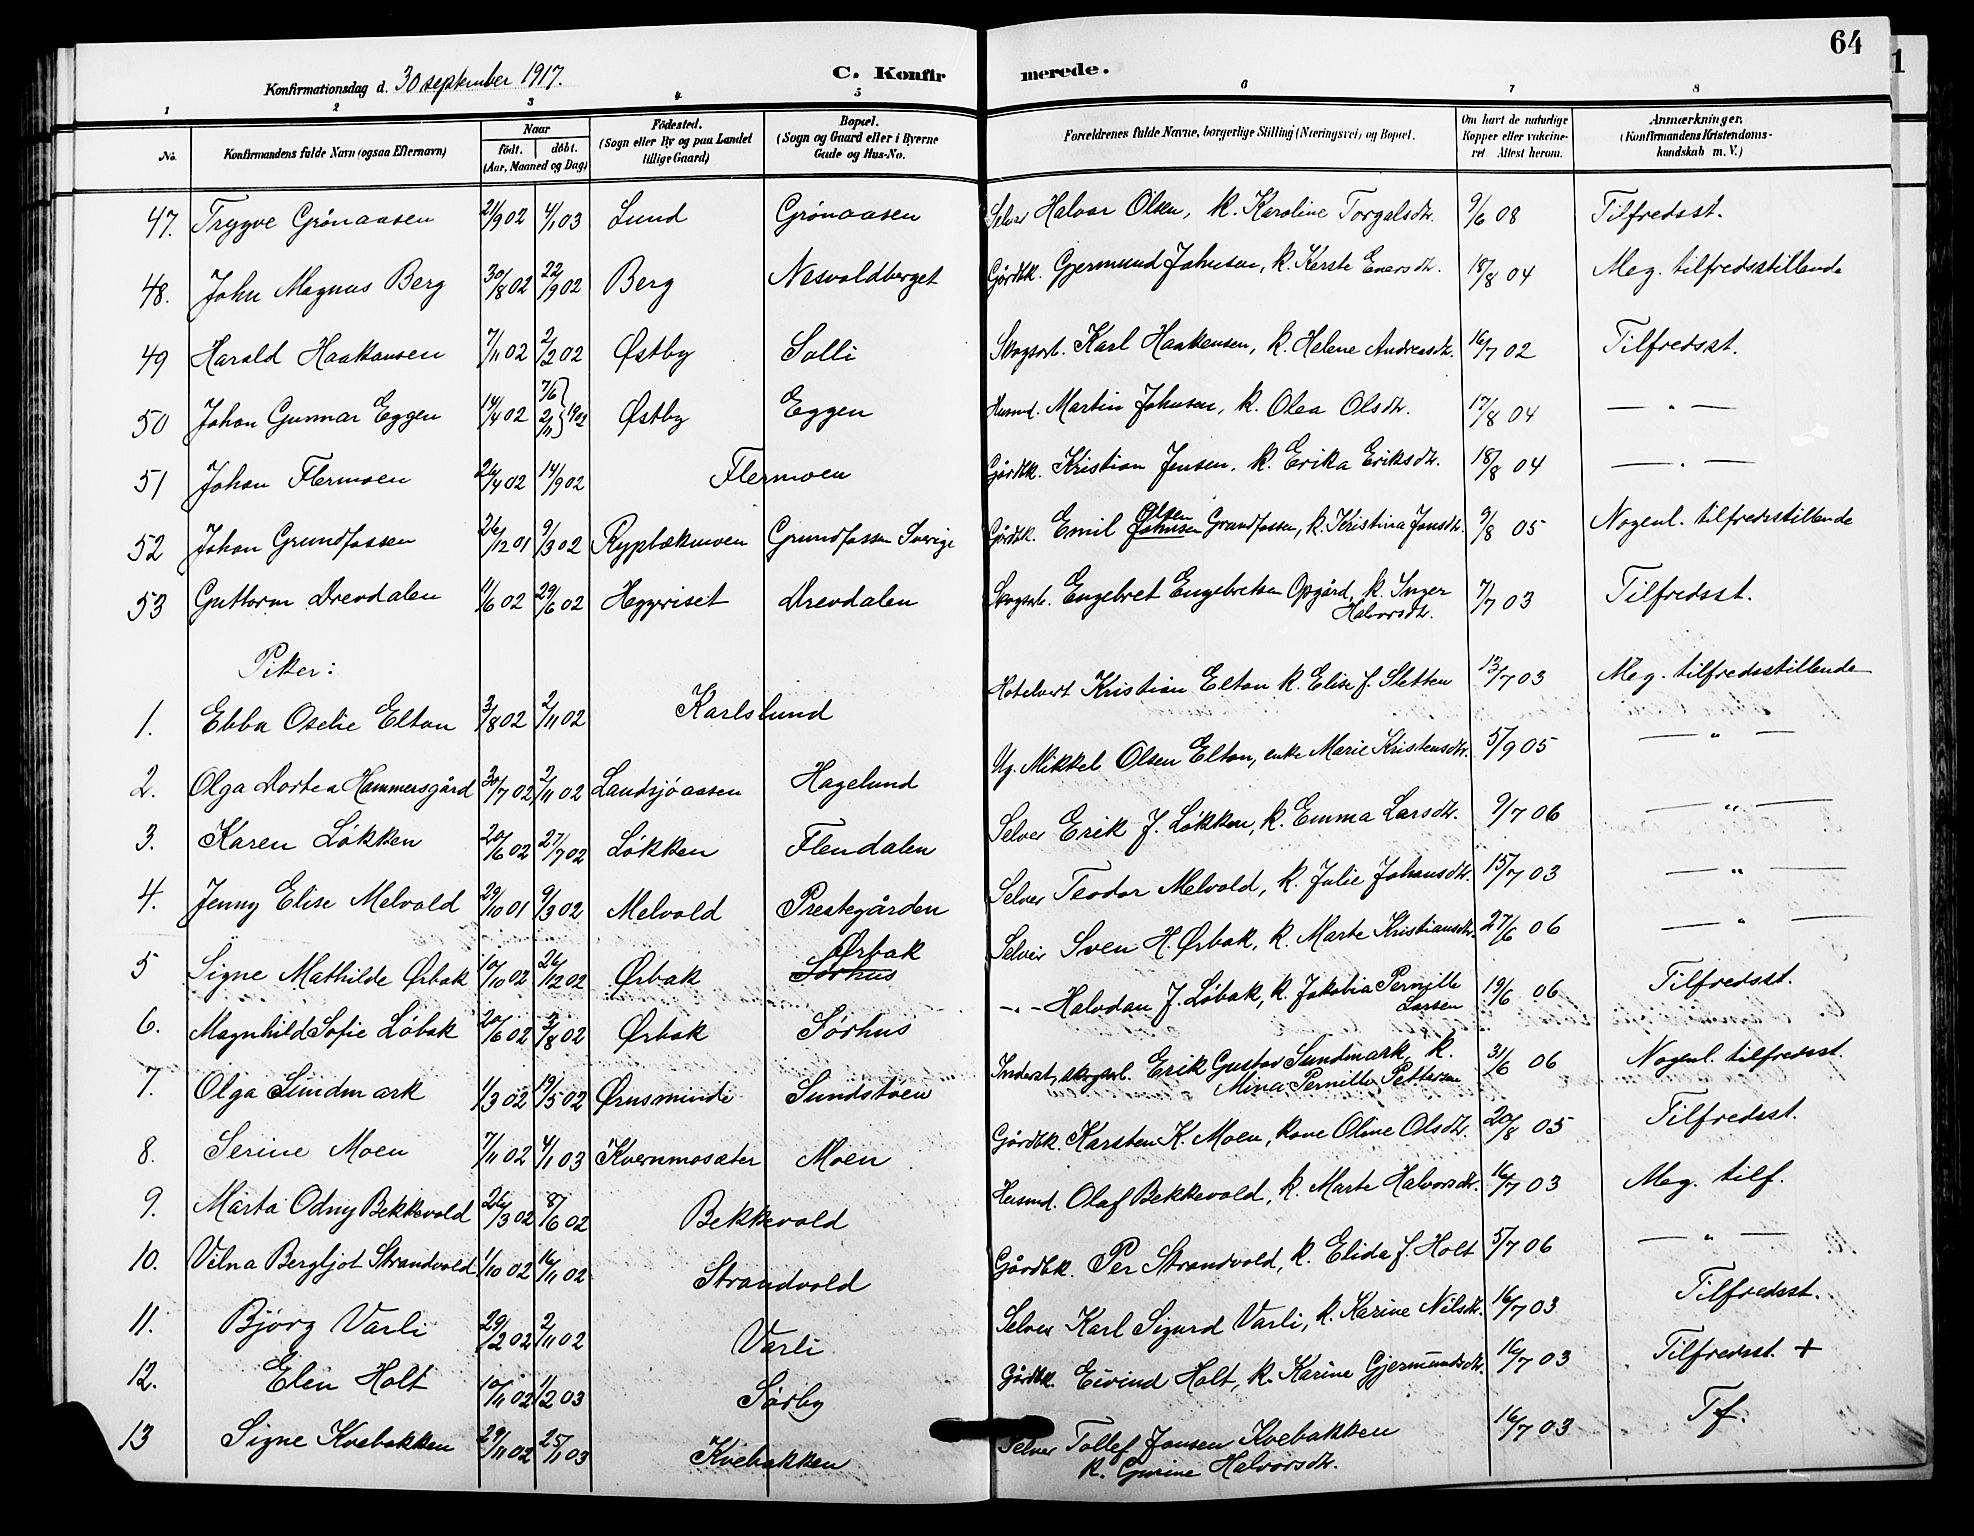 64
1
Konfirmationsdag d. 30 september 1917.
C. Konfirmerede.
1 2 3 4 5 6 7 8
No. Konfirmandens fulde Navn (ogsaa Efternavn) Naar födt. döbt. (Aar, Maaned og Dag) Födested. (Sogn eller By og paa Landet tillige Gaard) Bopæl. (Sogn og Gaard eller i Byerne Gade og Hus-No. Forældrenes fulde Navne, borgerlige Stilling (Næringsvei) og Bopæl. Om havt de naturlige Kopper eller vakcineret Attest herom. Anmærkninger. (Konfirmandens Kristendomskundskab m. V.)
47. Trygve Grönaasen 21/9 02 4/1 03 Lund Grönaasen Selvei Halvor Olsen, k. Karoline Torgalsdtr. 9/6 08 Tilfredsst.
48. John Magnus Berg 30/8 02 22/9 02 Berg Nesvoldberget Gårdbk. Gjermund Johnsen, k. Kerste Enersdtr. 18/8 04 Meg. tilfredsstillende
49 Harald Haakansen 7/11 02 2/2 02 Østby Solli Skogsarb. Karl Haakensen, k. Helene Andreasdtr. 16/7 02 Tilfredsst.
50 Johan Gunnar Eggen 14/4 02 7/6 2/11 } 1902 Østby Eggen Husmd. Martin Johnsen, k. Olea Olsdtr. 17/8 04 — " —
51 Johan Flermoen 24/4 02 14/9 02 Flermoen Gårdbk. Kristian Jensen, k. Erika Eriksdtr. 18/8 04 — " —
52 Johan Grundfossen 26/12 01 9/3 02 Rypbækmoen Grundfossen Sverige Gårdbk. Emil Johnsen Olsen Grundfossen, k. Kristina Jonsdtr. 9/8 05 Nogenl. tilfredsstillende
53 Guttorm Drevdalen 11/6 02 29/6 02 Heggeriset Drevdalen Skogsarb. Engebret Engebretsen Opgård, k. Inger Halvorsdtr. 7/7 03 Tilfredsst.
Piker:
1. Ebba Oselie Elton 3/8 02 2/11 02 Karlslund Hotelvert Kristian Elton k. Elise f. Sletten 13/7 03 Meg. tilfredsstillende
2. Olga Dortea Hammersgård 30/7 02 2/11 02 Landsjöaasen Hagelund Ug. Mikkel Olsen Elton, enke Marie Kristensdtr. 5/9 05 — " —
3. Karen Løkken 20/6 02 27/7 02 Løkken Flendalen Selvei Erik J. Løkken, k. Emma Larsdtr. 9/7 06 — " —
4. Jenny Elise Melvold 29/10 01 9/3 02 Melvold Prestegården Selvei Teodor Melvold, k. Julie Johansdtr. 15/7 03 — " —
5 Signe Mathilde Ørbak 10/10 02 26/12 02 Ørbak Sørhus Ørbak Selvei Sven H. Ørbak, k. Marte Kristiansdtr. 27/6 06 — " —
6. Magnhild Sofie Løbak 20/6 02 3/8 02 Ørbak Sørhus -"- Halvdan J. Løbak, k. Jakobia Pernille Larsen 19/6 06 Tilfredsst.
7. Olga Sundmark 1/3 02 19/5 02 Ørusminde Sundstöen Inderst, skogsarb. Erik Gustav Sundmark, k. Mina Pernille Pettersen 31/6 06 Nogenl. tilfredsst.
8. Serine Moen 7/11 02 4/1 03 Kvernmosæter Moen Gårdbk. Karsten K. Moen, kone Oline Olsdtr. 20/8 05 Tilfredsst.
9. Marta Odny Bekkevold 26/3 02 8/6 02 Bekkevold Husmd. Olaf Bekkevold, k. Marte Halvorsdtr. 16/7 03 Meg. tilf.
10. Velna Bergljot Strandvold 1/10 02 16/11 02 Strandvold Gårdbk. Per Strandvold, k. Elida f. Holt 5/7 06 — " —
11. Bjørg Varli 29/2 02 2/11 02 Varli Selvei Karl Sigurd Varli, k. Karine Nilsdtr. 16/7 03 Tilfredsst.
12. Elin Holt 10/11 02 1/2 03 Sørby Gårdbk. Eivind Holt, k. Karine Gjermundsdtr. 16/7 03 Tilfredsst. +
13 Signe Kvebakken 29/11 02 25/1 03 Kvebakken Selvei Tollef Jonsen Kvebakken k. Gurine Halvorsdtr. 16/7 03 Tf.